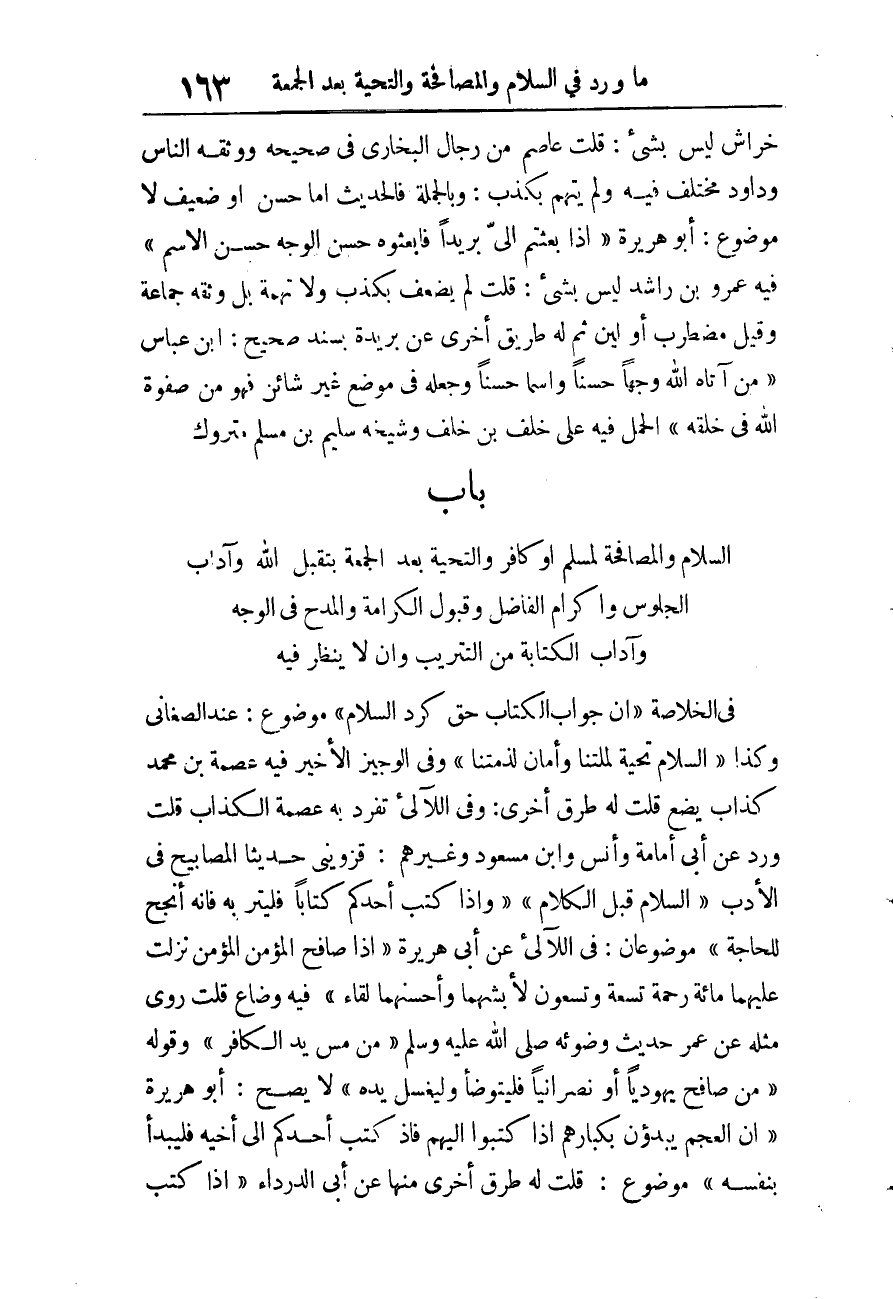 ما ورد في السلام والمصافحة والتحية بعد الجمعة ١٦٣
خراش ليس بشىٔ : قلت عاصم من رجال البخارى فى صحيحه ووثقه الناس
وداود مختلف فيه ولم يتهم بكذب : وبالجملة فالحديث اما حسن او ضعيف لا
موضوع : أبو هريرة « اذا بعثتم الىّ بريداً فابعثوه حسن الوجه حسن الاسم »
فيه عمرو بن راشد ليس بشىٔ : قلت لم يضعف بكذب ولا تهمة بل وثقه جماعة
وقيل مضطرب أو لين ثم له طريق أخرى عن بريدة بسند صحيح : ابن عباس
« من آتاه الله وجهاً حسناً واسما حسناً وجعله فى موضع غير شائن فهو من صفوة
الله فى خلقه » الحمل فيه على خلف بن خلف وشيخه سليم بن مسلم متروك
باب
السلام والمصافحة لمسلم او كافر والتحية بعد الجمعة بتقبل الله وآداب
الجلوس واكرام الفاضل وقبول الكرامة والمدح فى الوجه
وآداب الكتابة من التتريب وان لا ينظر فيه
فى الخلاصة «ان جواب الكتاب حق كرد السلام» موضوع : عند الصغانى
وكذا « السلام تحية لملتنا وأمان لذمتنا » وفى الوجيز الأخير فيه عصمة بن محمد
كذاب يضع قلت له طرق أخرى: وفى اللآلىٔ تفرد به عصمة الكذاب قلت
ورد عن أبى أمامة وأنس وابن مسعود وغيرهم : قزوينى حديثا المصابيح فى
الأدب « السلام قبل الكلام » « واذا كتب أحدكم كتاباً فليتر به فانه أنجح
للحاجة » موضوعان : فى اللآلىٔ عن أبى هريرة « اذا صافح المؤمن المؤمن نزلت
عليهما مائة رحمة تسعة وتسعون لأبشهما وأحسنهما لقاء » فيه وضاع قلت روى
مثله عن عمر حديث وضوئه صلى الله عليه وسلم « من مس يد الكافر » وقوله
« من صافح يهودياً أو نصرانياً فليتوضأ وليغسل يده » لا يصح : أبو هريرة
« ان العجم يبدؤن بكبارهم اذا كتبوا اليهم فاذ كتب أحدكم الى أخيه فليبدأ
بنفسه » موضوع : قلت له طرق أخرى منها عن أبى الدرداء « اذا كتب